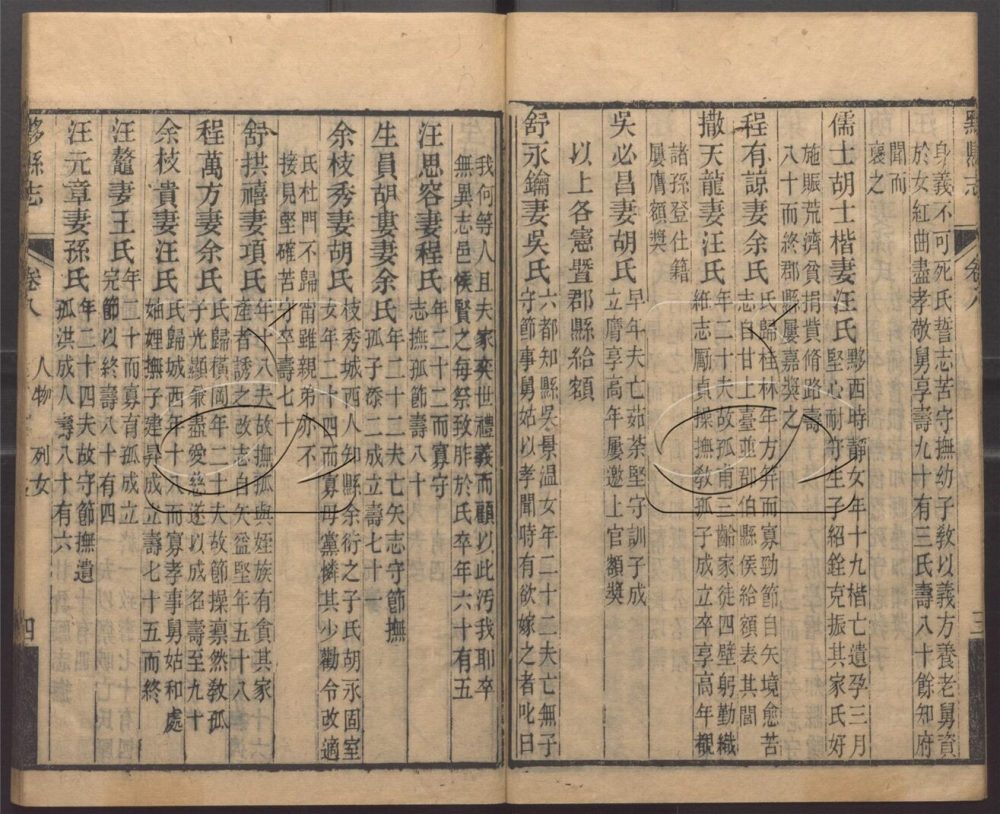 黟縣志 卷八 三
身義不可死氏誓志苦守撫幼子敎以義方養老舅資
於女紅曲盡孝敬舅享壽九十有三氏壽八十餘知府
聞而
襃之
儒士胡士楷妻汪氏
黟西時靜女年十九楷亡遺孕三月
堅心耐守生子紹銓克振其家氏好
施賑荒濟貧捐貲脩路壽
八十而終郡縣屢嘉奬之
程有諒妻余氏
氏歸桂林年方笄而寡勁節自矢境愈苦
志日甘上臺暨郡伯縣侯給額表其閭
撒天龍妻汪氏
年二十夫故孤甫三齡家徒四壁躬勤織
絍志厲貞操撫敎孤子成立卒享高年
諸孫登仕籍
屢膺額奬
吳必昌妻胡氏
早年夫亡茹荼堅守訓子成
立膺享高年屢邀上官額奬
以上各憲暨郡縣給額
舒永鑰妻吳氏
六都知縣吳景溫女年二十二夫亡無子
守節事舅姑以孝聞時有欲嫁之者叱曰
我何等人且夫家奕世禮義而顧以此汚我耶卒
無異志邑侯賢之每祭致胙於氏卒年六十有五
汪思容妻程氏
年二十二而寡守
志撫孤節壽八十
生員胡婁妻余氏
年二十二夫亡矢志守節撫
孤子添二成立壽七十
余枝秀妻胡氏
枝秀城西人知縣余衍之子氏胡永固室
女年二十四而寡母黨憐其少勸令改適
氏杜門不歸甯雖親弟亦不
接見堅確苦守卒壽七十
舒拱禧妻項氏
年十八夫故撫孤與姪族有貪其家
產者誘之改志自矢益堅年五十八
程萬方妻余氏
氏歸橫岡年二十夫故節操凛然敎孤
子光顯兼盡愛慈遂以成名壽至九十
余枝貴妻汪氏
氏歸城西年十八而寡孝事舅姑和處
妯娌撫子建昇成立壽七十五而終
汪鼇妻王氏
年二十而寡育孤成立
完節以終壽八十有四
汪元章妻孫氏
年二十四夫故守節撫遺
孤淇成人壽八十有六
黟縣志 卷八 人物 列女 四